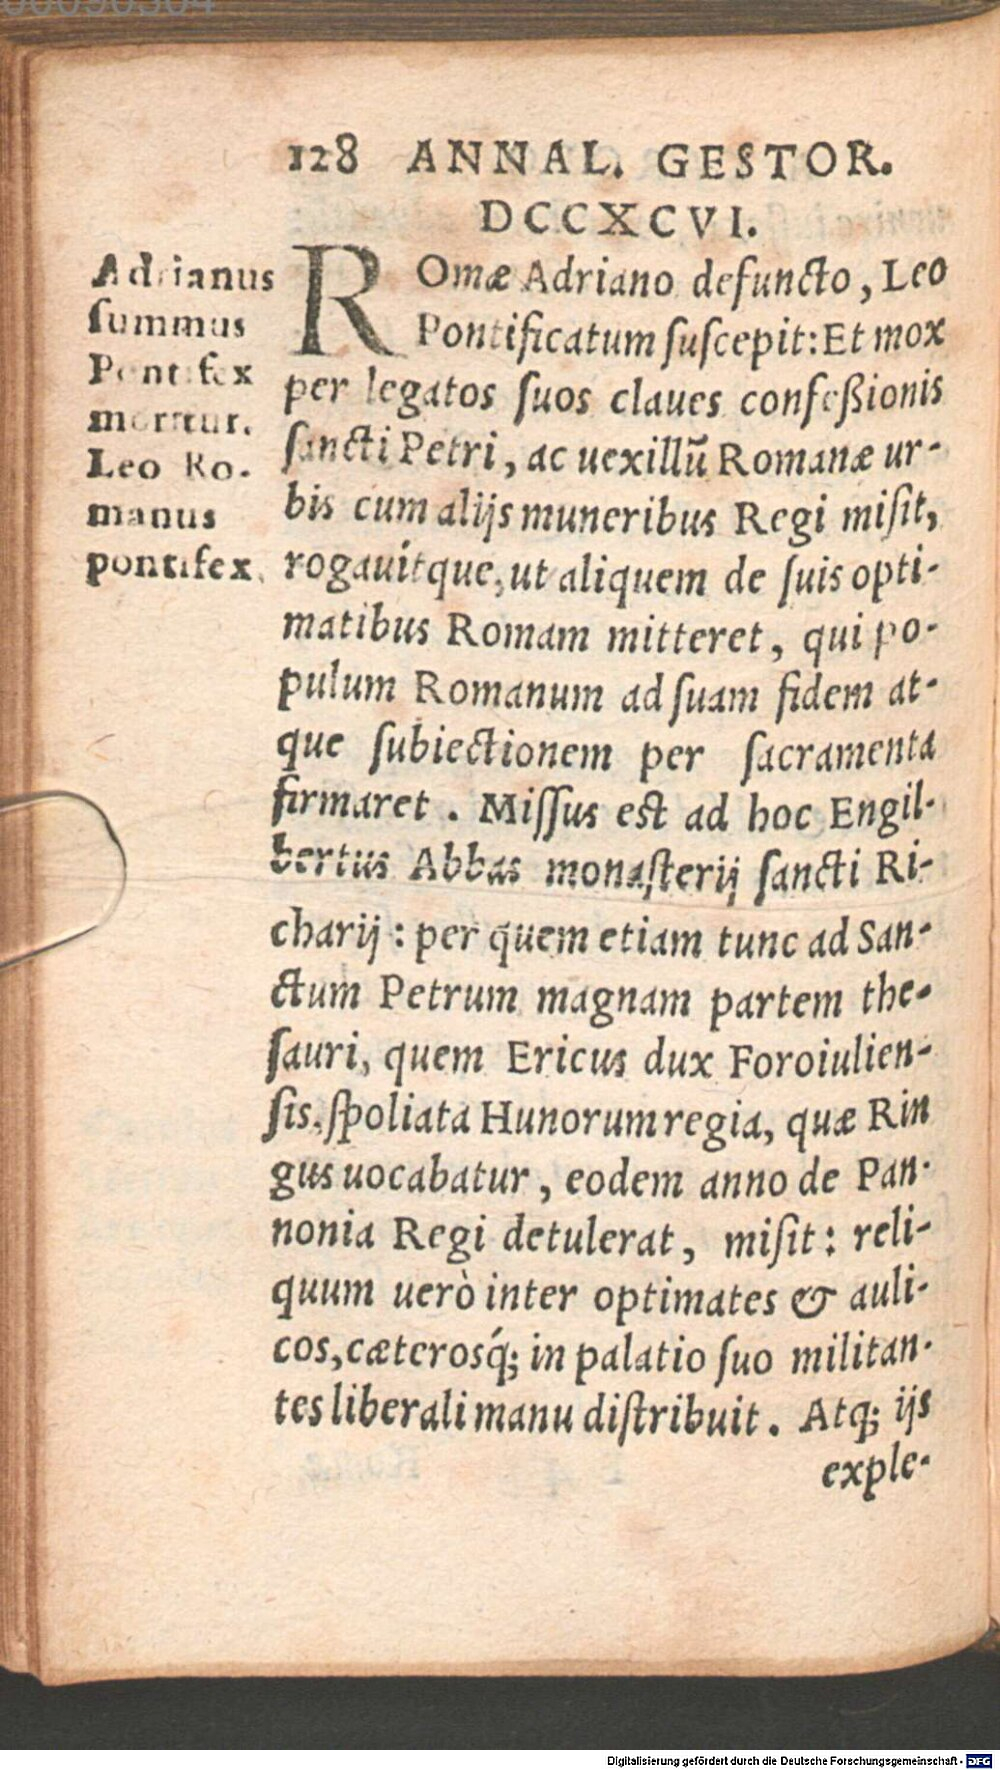 128 ANNAL. GESTOR.
DCCXCVI.
Adrianus
summus
Pontifex
moritur.
Leo Ro-
manus
pontifex.
ROmæ Adriano defuncto, Leo
Pontificatum ſuſcepit: Et mox
per legatos ſuos claues confeßionis
ſancti Petri, ac uexillū Romanæ ur-
bis cum alijs muneribus Regi miſit,
rogauítque, ut aliquem de ſuis opti-
matibus Romam mitteret, qui po-
pulum Romanum ad ſuam fidem at-
que ſubiectionem per ſacramenta
firmaret. Miſſus est ad hoc Engil-
bertus Abbas monaſterij ſancti Ri-
charij: per quem etiam tunc ad San-
ctum Petrum magnam partem the-
ſauri, quem Ericus dux Foroiulien-
ſis, ſpoliata Hunorum regia, quæ Rin
gus uocabatur, eodem anno de Pan-
nonia Regi detulerat, miſit: reli-
quum uerò inter optimates & auli-
cos, cæterosq́; in palatio ſuo militan-
tes liberali manu diſtribuit. Atq; ijs
exple-
Digitalisierung gefördert durch die Deutsche Forschungsgemeinschaft - DFG